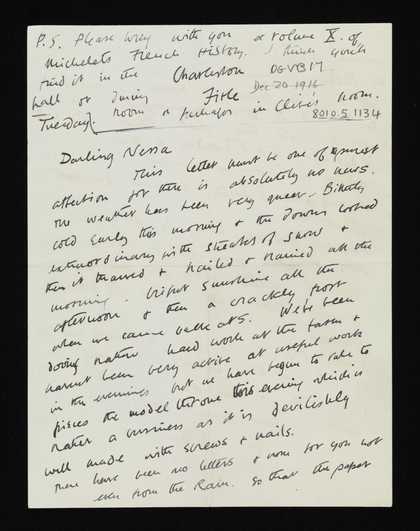 P.S. Please bring with you a volume X. of
Michelet's French History. I think you'll
find it in the Charleston DGVB17
hall or dining Firle Dec 20 1916
Tuesday room or perhaps in Clive's room.
8010.5.1134
Darling Nessa
This letter must be one of purest
affection for there is absolutely no news.
The weather has been very queer. Bitterly
cold early this morning & the downs looked
extraordinary with streaks of snow &
then it thawed & hailed & rained all the
morning. Bright sunshine all the
afternoon & then a crackly frost
when we came back at 5. We've been
doing rather hard work at the farm &
haven't been very active at useful work
in the evenings but we have begun to take to
pieces the model throne this evening which is
rather a business as it is devilishly
well made with screws & nails.
There have been no letters & none for you not
even from the Rain. So that the paper